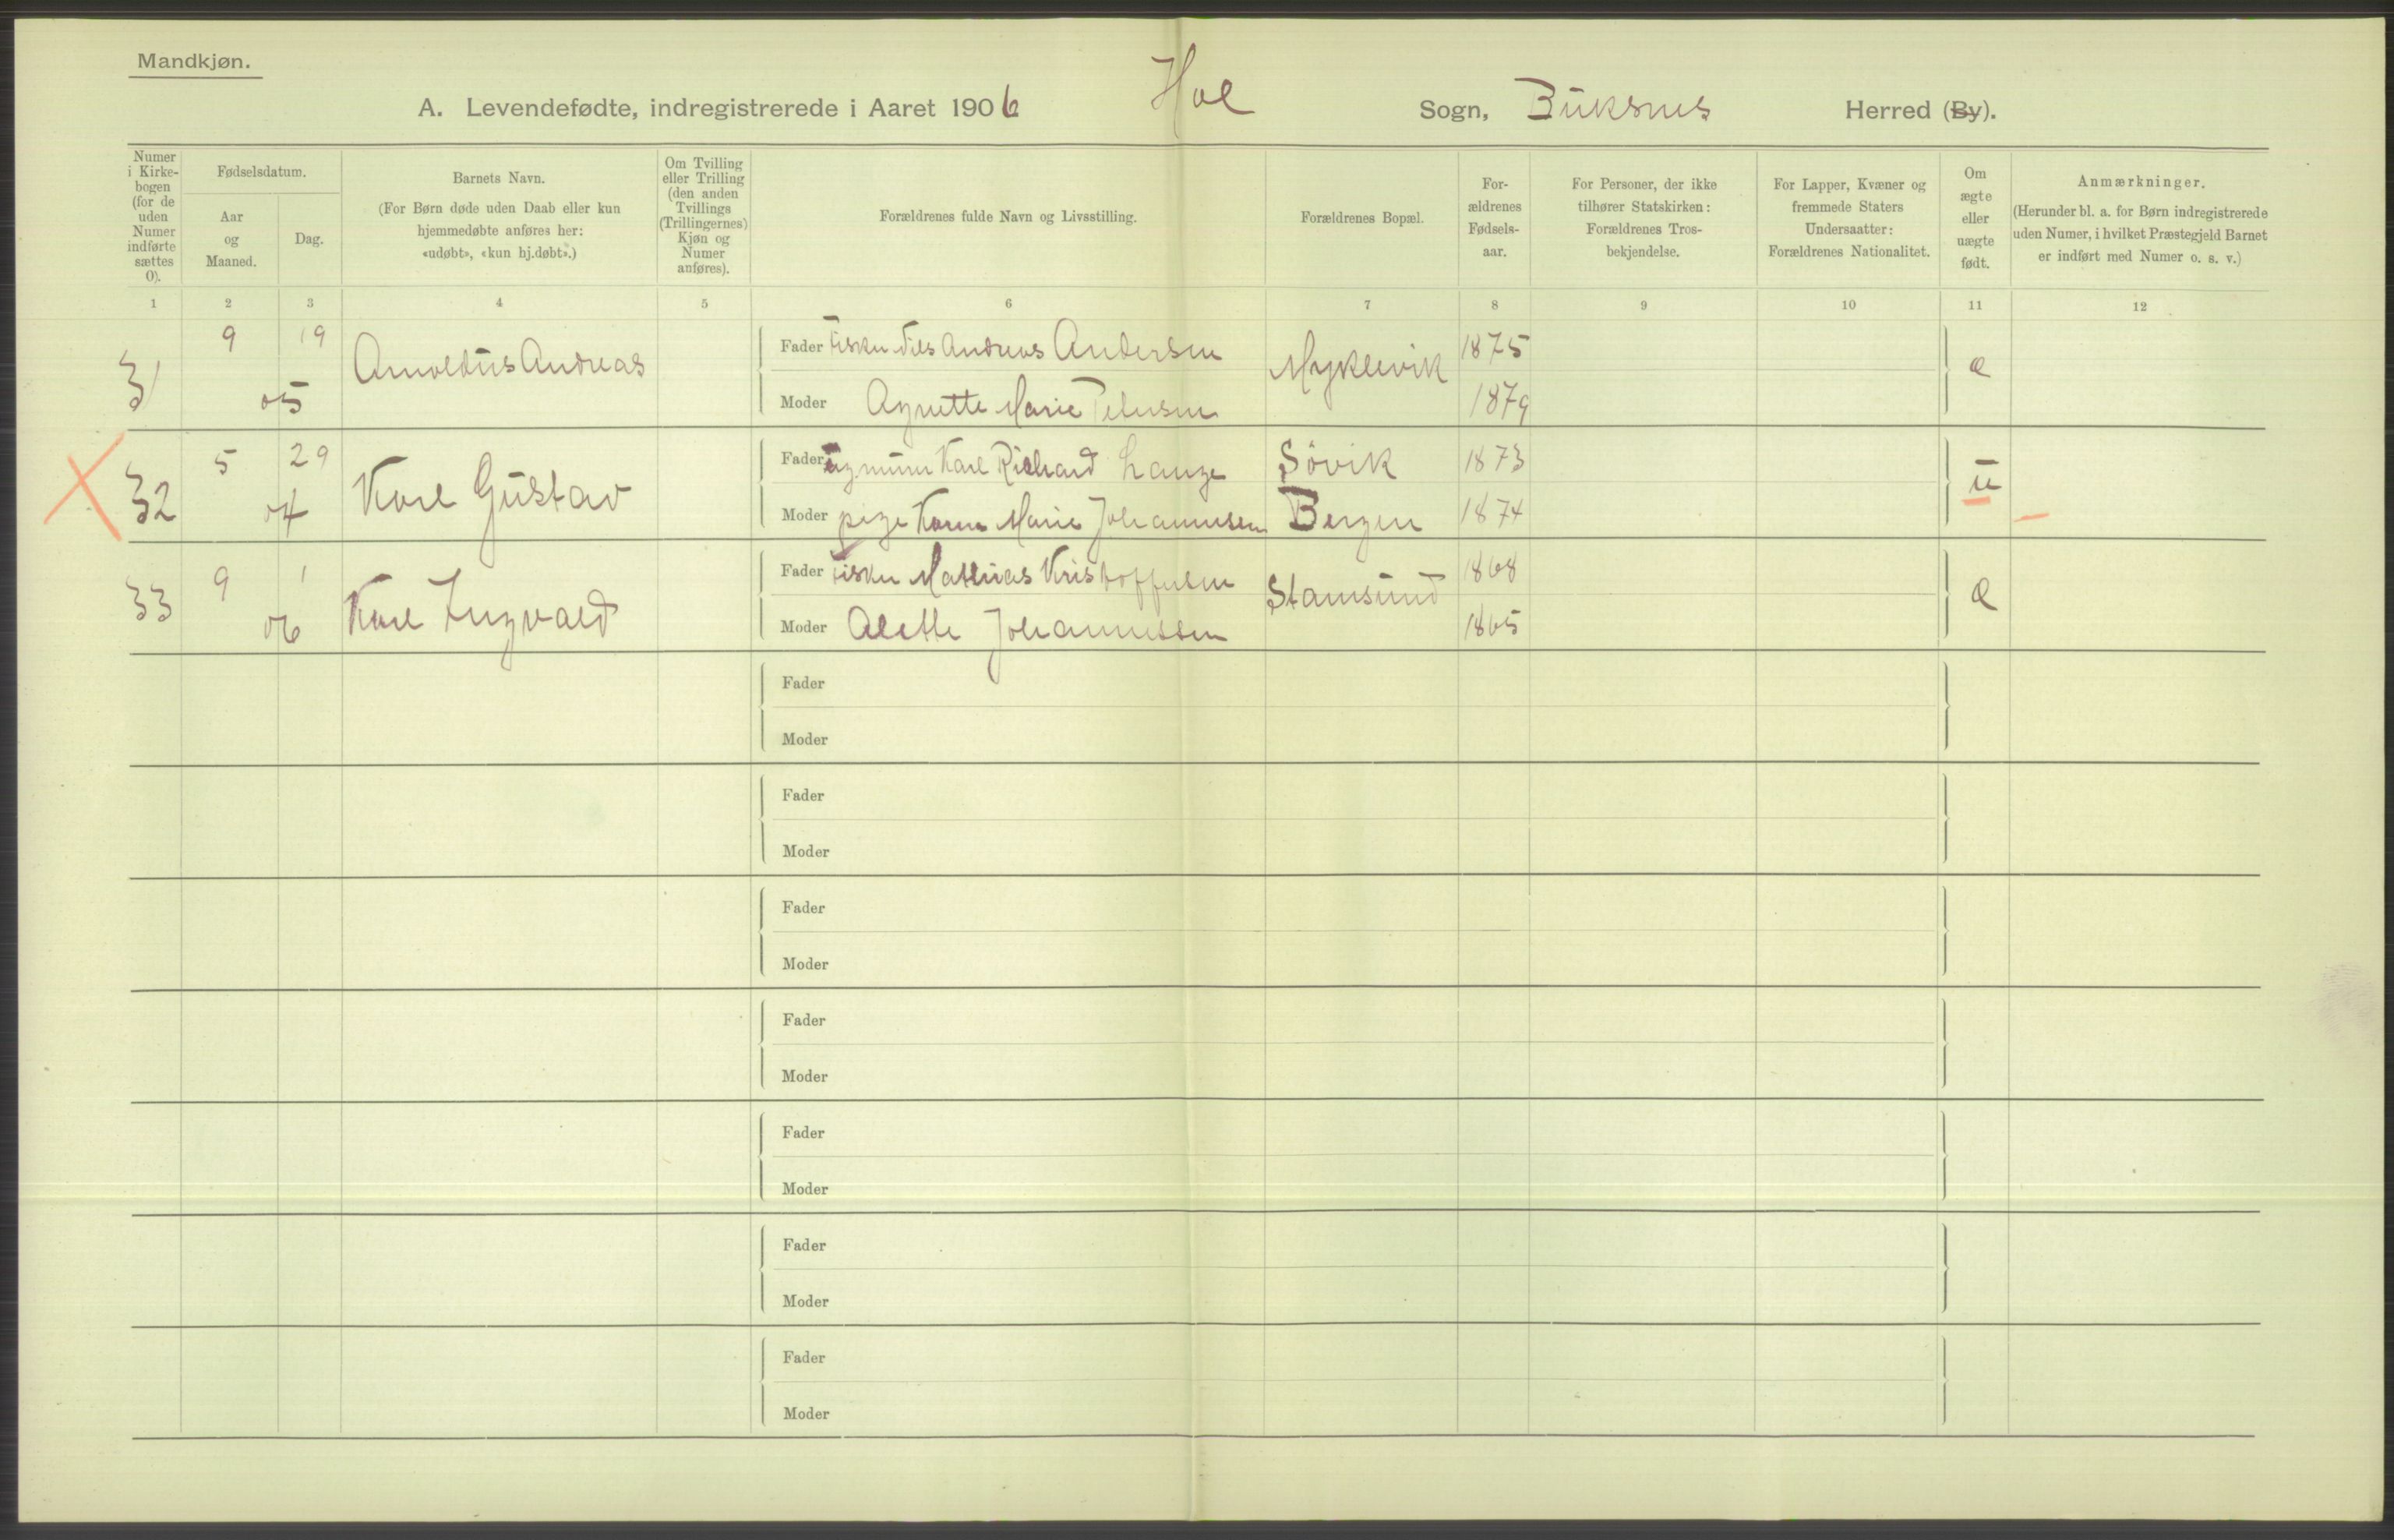 Mandkjøn.
A. Levendefødte, indregistrerede i Aaret 1906 Hol Sogn, Buksnes Herred (By).
Numer i Kirkebogen (for de uden Numer indførte sættes 0).
Fødselsdatum.
Aar og Maaned.
Dag.
Barnets Navn.
(For Børn døde uden Daab eller kun hjemmedøbte anføres her: «udøbt», «kun hj.døbt».)
Om Tvilling eller Trilling (den anden Tvillings (Trillingernes) Kjøn og Numer anføres).
Forældrenes fulde Navn og Livsstilling.
Forældrenes Bopæl.
Forældrenes Fødselsaar.
For Personer, der ikke tilhører Statskirken: Forældrenes Trosbekjendelse.
For Lapper, Kvæner og fremmede Staters Undersaatter: Forældrenes Nationalitet.
Om ægte eller uægte født.
Anmærkninger.
(Herunder bl. a. for Børn indregistrerede uden Numer, i hvilket Præstegjeld Barnet er indført med Numer o. s. v.)
1 2 3 4 5 6 7 8 9 10 11 12
31 9 19 05 Arnoldus Andreas
Fader Fisker Nils Andreas Andersen Myklevik 1875 æ
Moder Agnette Marie 1879
32 5 29 04 Karl Gustav
Fader Karl Richard Lange Søvik 1873 u
Moder pige Karen Marie Johannesen Bergen 1874
33 9 1 06 Karl Ingvald
Fader Fisker Mathias Kristoffersen Stamsund 1868 æ
Moder Alette Johannessen 1865
Fader
Moder
Fader
Moder
Fader
Moder
Fader
Moder
Fader
Moder
Fader
Moder
Fader
Moder